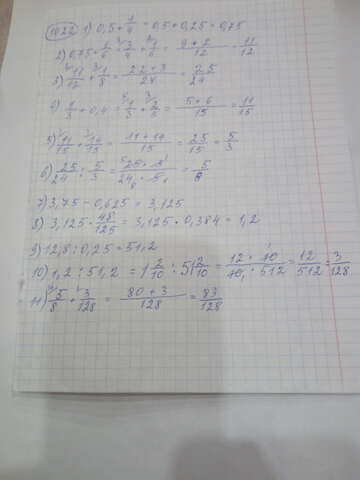 1022 1) 0,5 + 1/4 = 0,5 + 0,25 = 0,75
2) 0,75 + 1/6 = 3/4 + 1/6 = 9 + 2 / 12 = 11/12
3) 11/12 + 1/8 = 22 + 3 / 24 = 25/24
4) 1/3 + 0,4 = 1/3 + 2/5 = 5 + 6 / 15 = 11/15
5) 11/15 + 14/15 = 11 + 14 / 15 = 25/15 = 5/3
6) 25/24 : 5/3 = 25 · 3 / 24 · 5 = 5/8
7) 3,75 - 0,625 = 3,125
8) 3,125 · 48/125 = 3,125 · 0,384 = 1,2
9) 12,8 : 0,25 = 51,2
10) 1,2 : 51,2 = 1 2/10 : 51 2/10 = 12 · 10 / 10 · 512 = 12/512 = 3/128
11) 5/8 + 3/128 = 80 + 3 / 128 = 83/128